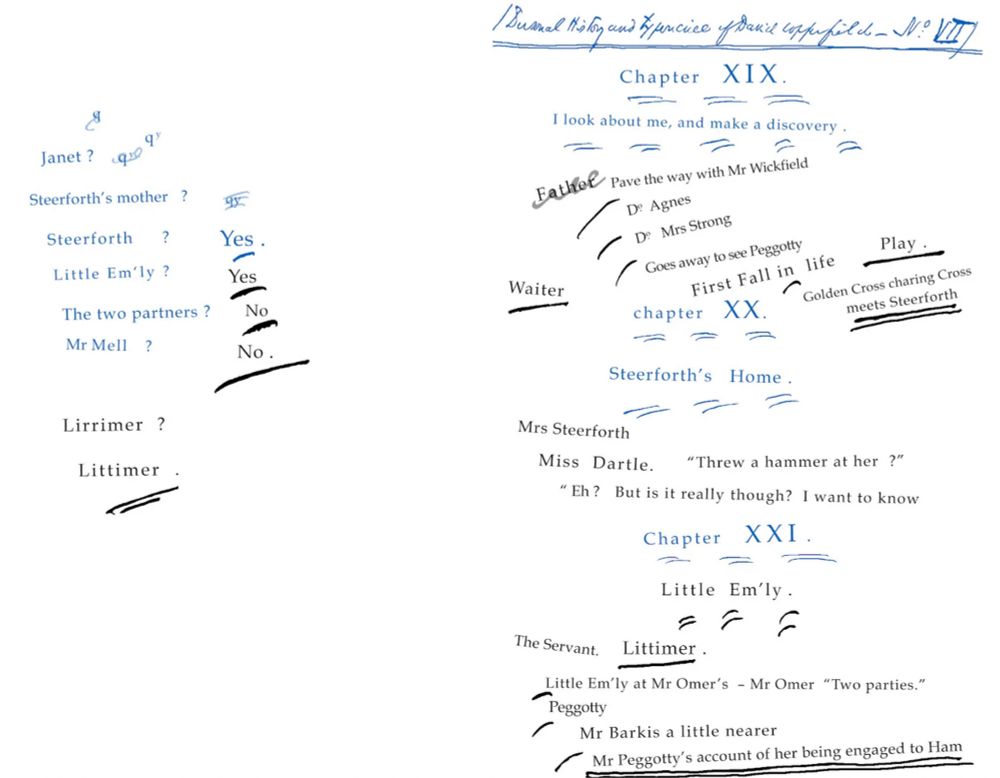 qy
Janet ?
Steerforth's mother ? qy
Steerforth ? Yes .
Little Em'ly ? Yes
The two partners ? No
Mr Mell ? No .
Lirrimer ?
Littimer .
(Personal History and Experience of David Copperfield – No. VII)
Chapter XIX .
I look about me, and make a discovery .
Father Pave the way with Mr Wickfield
Do Agnes
Do Mrs Strong
Goes away to see Peggotty
Play .
First Fall in life
Waiter
Golden Cross charing Cross
meets Steerforth
chapter XX.
Steerforth's Home .
Mrs Steerforth
Miss Dartle. "Threw a hammer at her ?"
" Eh ? But is it really though? I want to know
Chapter XXI .
Little Em'ly .
The Servant. Littimer .
Little Em'ly at Mr Omer's – Mr Omer "Two parties."
Peggotty
Mr Barkis a little nearer
Mr Peggotty's account of her being engaged to Ham